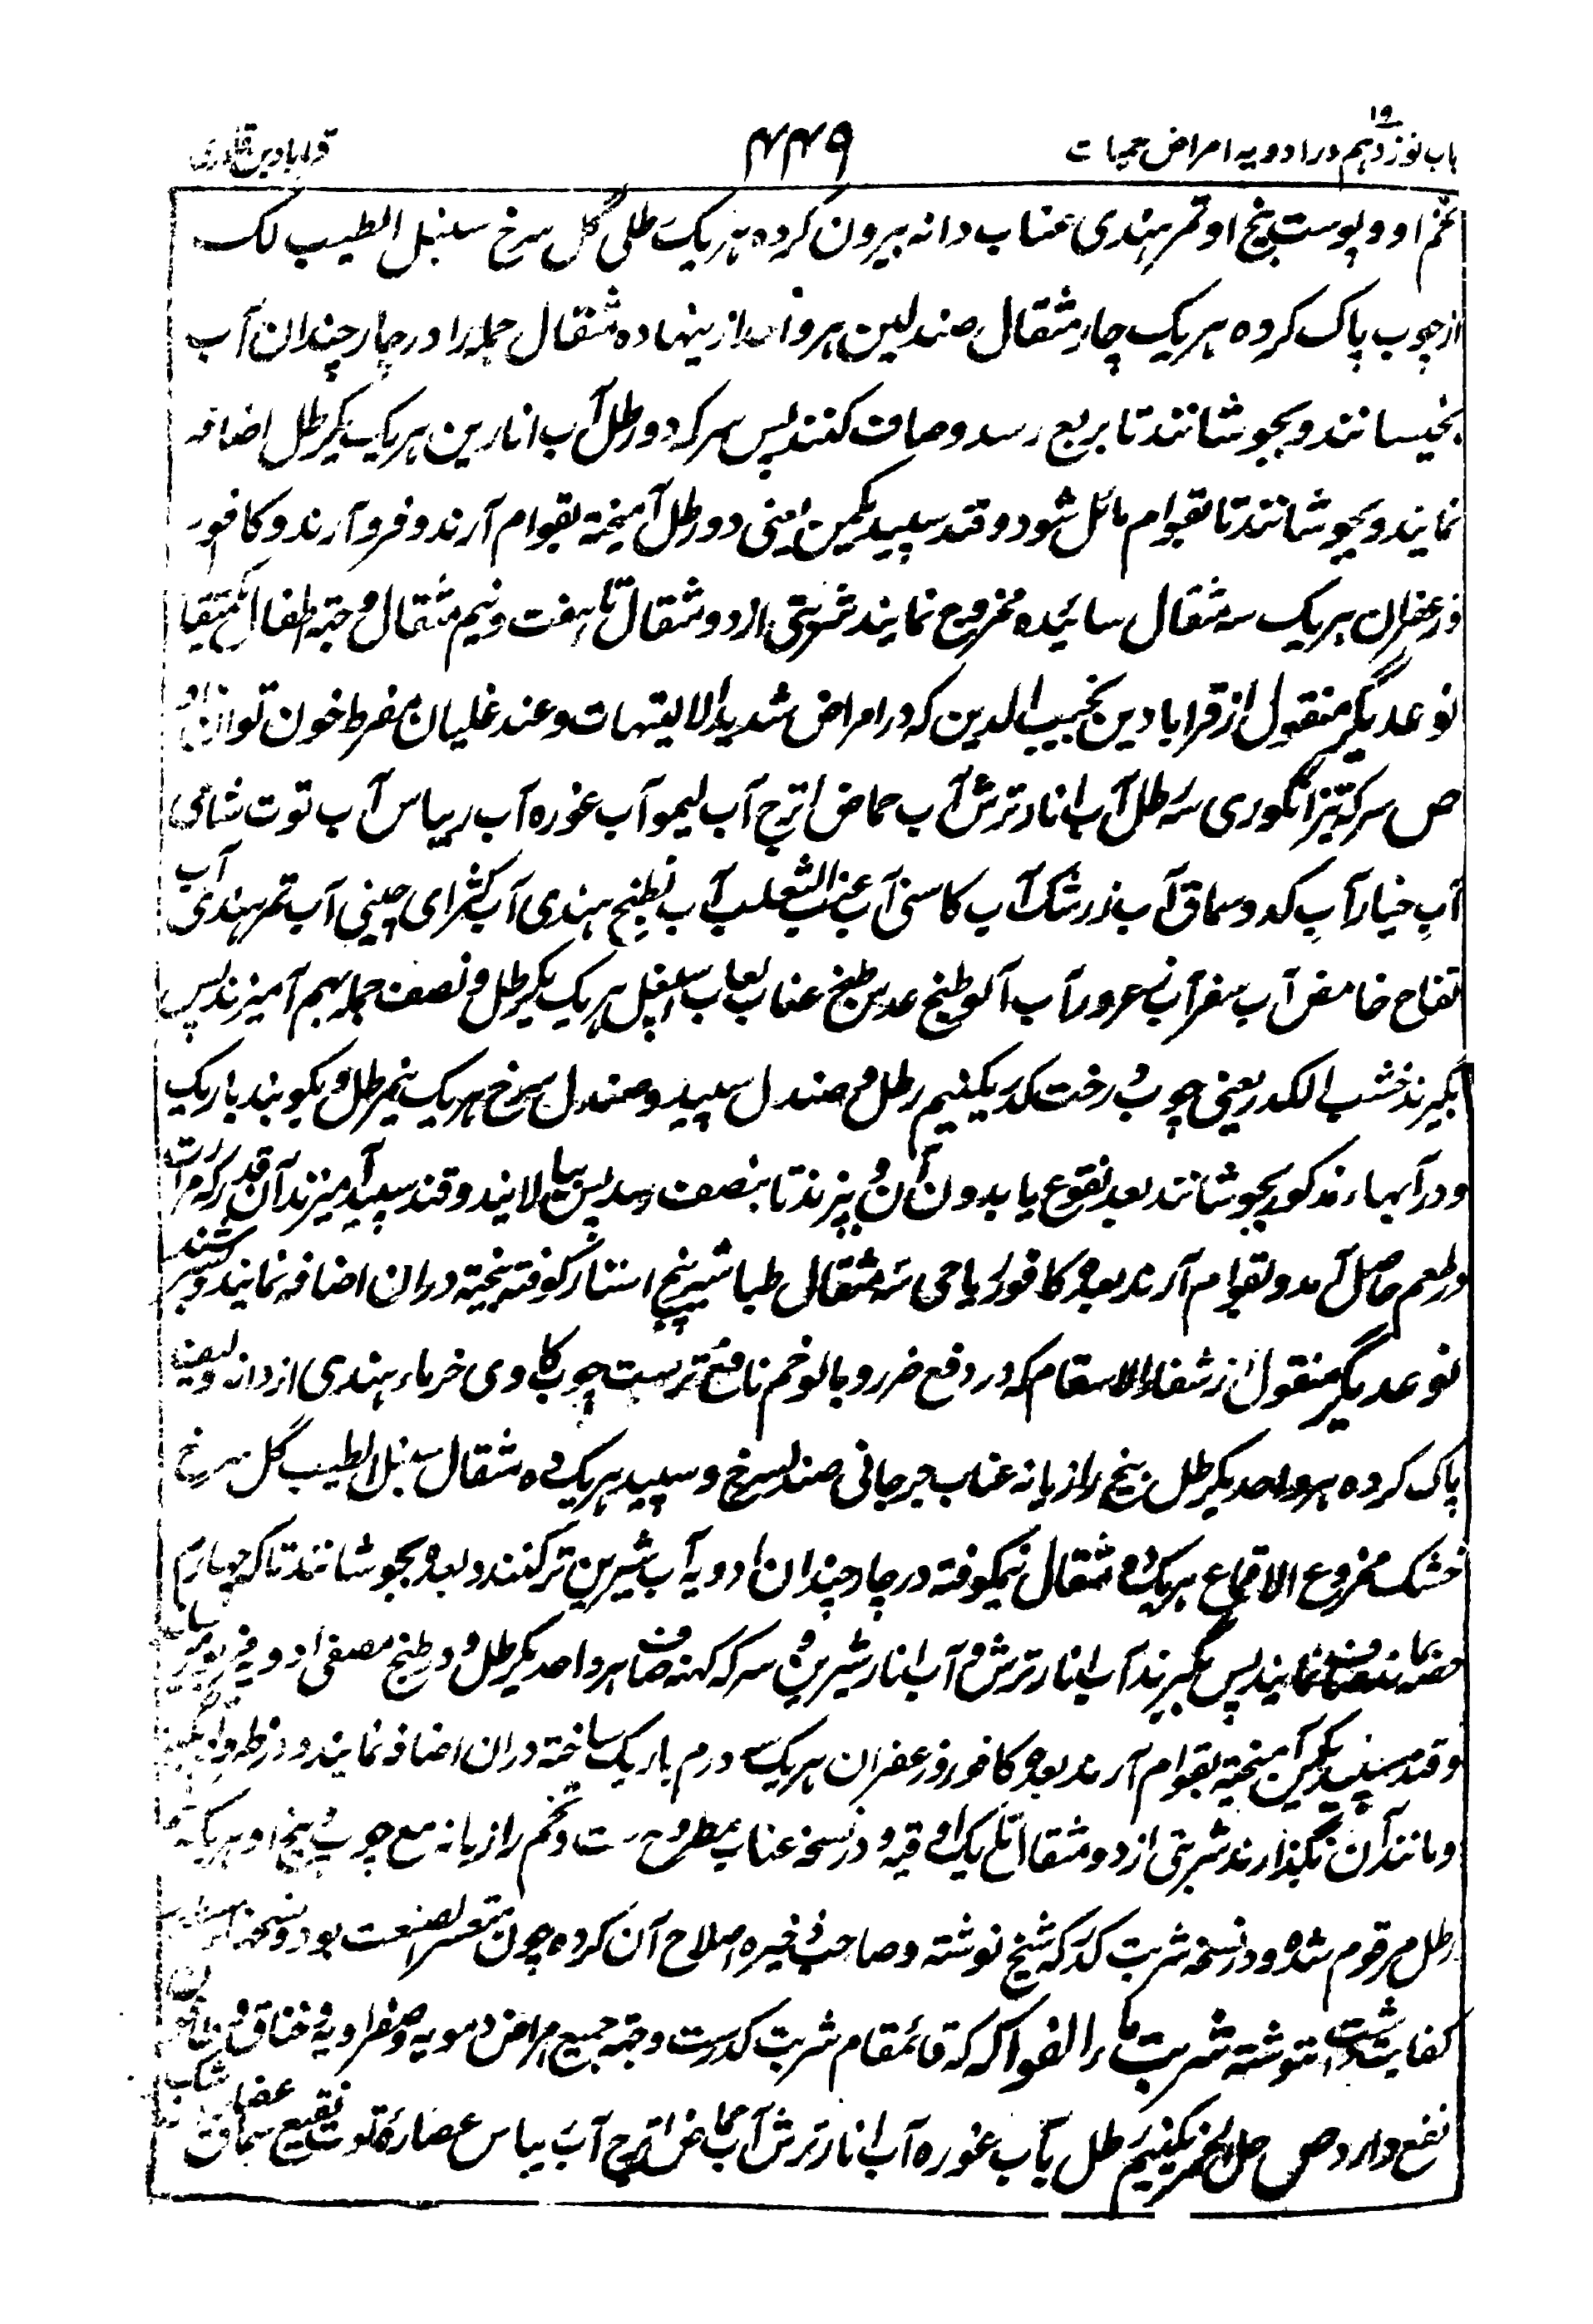 باب نوزدہم در ادویہ امراض حمیات ۴۴۹ قرابادین قادری
تخم او و پوست بیخ او تمر ہندی عناب دانہ بیرون کردہ ہر یک رطلی گل سرخ سنبل الطیب لک
از چوب پاک کردہ ہر یک چار مثقال صندلین ہر واحد ازینہا دہ مثقال جملہ را در چار چندان آب
بخیسانند و بجوشانند تا بربع رسد و صاف کنند پس سرکہ دو رطل آب انارین ہر یک یکرطل اضافہ
نمایند و بجوشانند تا بقوام مائل شود و قند سپید یکمن یعنی دو رطل آمیختہ بقوام آرند و فرو آرند و کافور
و زعفران ہر یک سہ مثقال سائیدہ ممزوج نمایند شربتی از دو مثقال تا ہفت و نیم مثقال و جہتہ اطفال
نوعدیگر منقول از قرابادین نجیب الدین کہ در امراض شدید الالتہاب و عند غلیان مفرط خون توان داد
ص سرکہ تیز انگوری سہ رطل آب انار ترش آب حماض اترج آب لیمو آب غورہ آب ریباس آب توت شامی
آب خیار آب کدو سماق آب زرشک آب کاسنی آب عنب الثعلب آب بطیخ ہندی آب کمثرای چینی آب تمر ہندی آب
تفاح حامض آب سفرآب زعرور آب آلو طبیخ عدس طبیخ عناب لعاب اسپغل ہر یک یکرطل و نصف جملہ بہم آمیزند پس
بگیرند خشب الکدر یعنی چوب درخت کدر یکنیم رطل و صندل سپید و صندل سرخ ہر یک نیمرطل و بکوبند باریک
و در آبہاء مذکور بجوشانند بعد نقوع یا بدون آن و بپزند تا بنصف رسد پس بپالایند و قند سپید آمیزند آن قدر کہ مزازت
در طعم حاصل آمد و بقوام آرند بعدہ کافور ریاحی سہ مثقال طباشیر پنج استار کوفتہ بیختہ دران اضافہ نمایند و
نوعدیگر منقول از شفاء الاسقام کہ در دفع ضرر وبا لوخم نافع ترست چوب کادی خرماء ہندی از دانہ و لیفہ
پاک کردہ ہر واحد یکرطل بیخ رازیانہ عناب جرجانی صندلسرخ و سپید ہر یک دہ مثقال سنبل الطیب گل سرخ
خشک مخروع الاقماع ہر یک مثقال نیمکوفتہ در چار چندان ادویہ آب شیرین تر کنند و بعدہ بجوشانند تا کہ چہارم
حصہ بماند صاف نمایند پس بگیرند آب انار ترش و آب انار شیرین و سرکہ کہنہ صاف ہر واحد یکرطل و در طبیخ مصفی ادویہ
و قند سپید یکمن آمیختہ بقوام آرند بعدہ کافور و زعفران ہر یک سہ درم باریک ساختہ دران اضافہ نمایند و در ظرف
و مانند آن نگہدارند شربتی از دو مثقال تا یک اوقیہ و در نسخہ عناب مطروح ست و تخم رازیانہ مع چوب بیخ او ہر یک
رطل مرقوم شدہ و در نسخہ شربت کدر کہ شیخ نوشتہ و صاحب ذخیرہ اصلاح آن کردہ چون متعسر الصنعت بود و نسخہ
کفایت داشت ننوشتہ شربت ماء الفواکہ کہ قائمقام شربت کدرست و جہتہ جمیع امراض دمویہ و صفراویہ و خناق و
نفع دارد ص خل الخمر یکنیم رطل آب غورہ آب انار ترش آب حماض اترج آب ریباس عصارہ توت نقیع سماق